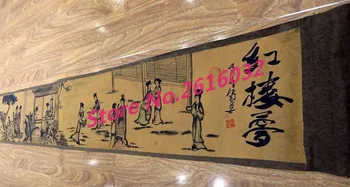 紅楼夢
Store No.2616032